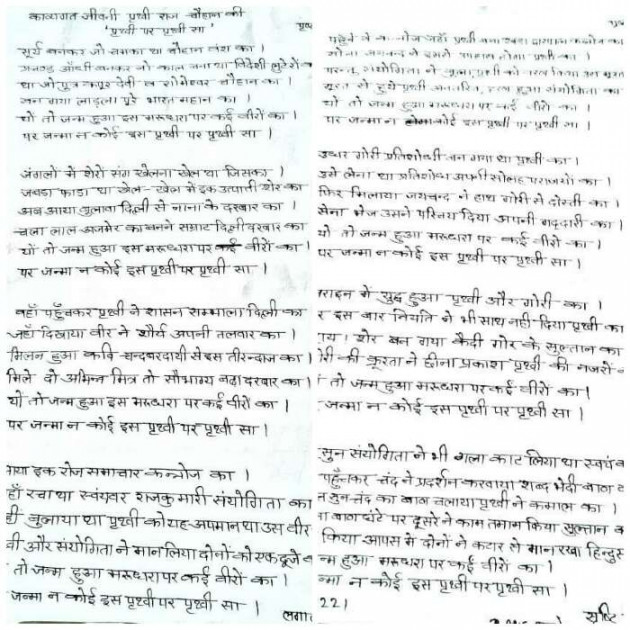 काव्यागत जीवनी पृथ्वी राज चौहान की
'पृथ्वी पर पृथ्वी सा'
सूर्य बनकर जो चमका था चौहान वंश का ।
आँधी बनकर जो काल बना था विदेशी लुटेरों का
था जो पुत्र कपूर देवी व सोमेश्वर चौहान का ।
बन गया लाड़ला पूरे भारत महान का ।
यों तो जन्म हुआ इस मरूधरा पर कई वीरों का ।
पर जन्मा न कोई इस पृथ्वी पर पृथ्वी सा ।
जंगलों में शेरों संग खेलना खेल था जिसका ।
जबड़ा फाड़ा था खेल-खेल में इक उत्पाती शेर का
अब आया बुलावा दिल्ली से नाना के दरबार का ।
चला लाल अजमेर का बनने सम्राट दिल्ली दरबार का
यों तो जन्म हुआ इस मरूधरा पर कई वीरों का ।
पर जन्मा न कोई इस पृथ्वी पर पृथ्वी सा ।
वहाँ पहुँचकर पृथ्वी ने शासन सम्भाला दिल्ली का
जहाँ दिखाया वीर ने शौर्य अपनी तलवार का ।
मिलन हुआ कवि चन्दबरदायी से इस तीरन्दाज का ।
मिले दो अभिन्न मित्र तो सौभाग्य बढ़ा दरबार का ।
यों तो जन्म हुआ इस मरूधरा पर कई वीरों का ।
पर जन्मा न कोई इस पृथ्वी पर पृथ्वी सा ।
आया इक रोज समाचार कन्नोज का ।
रचा था स्वंयवर राजकुमारी संयोगिता का
बुलाया था पृथ्वी को यह अपमान था उस वीर
और संयोगिता ने मान लिया दोनों को एक दूजे
तो जन्म हुआ मरूधरा पर कई वीरों का ।
जन्मा न कोई इस पृथ्वी पर पृथ्वी सा ।
लगा
पहुँचे वे कन्नोज जहाँ पृथ्वी बना खड़ा द्वारपाल कन्नोज का
सोचा जयचन्द ने इससे अपमान होगा पृथ्वी का ।
परन्तु संयोगिता ने चुना पृथ्वी को
से हुये पृथ्वी हुआ संयोगिता का
यों तो जन्म हुआ मरूधरा पर कई वीरों का ।
पर जन्मा न कोई इस पृथ्वी पर पृथ्वी सा ।
उधर गोरी प्रतिशोधी बन गया था पृथ्वी का ।
उसे लेना था प्रतिशोध अपनी सोलह पराजयों का ।
फिर मिलाया जयचन्द ने हाथ गोरी से दोस्ती का ।
सेना भेज उसने परिचय दिया अपनी गद्दारी का ।
यों तो जन्म हुआ मरूधरा पर कई वीरों का ।
पर जन्मा न कोई इस पृथ्वी पर पृथ्वी सा ।
तराइन में युद्ध हुआ पृथ्वी और गोरी का ।
इस बार नियति ने भी साथ नही दिया पृथ्वी का
हाय ! शेर बन गया कैदी गोर के सुल्तान का
गोरी की क्रूरता ने छीना प्रकाश पृथ्वी की नजरों
तो जन्म हुआ मरूधरा पर कई वीरों का ।
जन्मा न कोई इस पृथ्वी पर पृथ्वी सा ।
सुन संयोगिता ने भी गला काट लिया था स्वयं
पहुँचकर चंद ने प्रदर्शन करवाया शब्द भेदी बाण
सुन चंद का बाण चलाया पृथ्वी ने कमाल का ।
बाण घंटे पर दूसरे ने काम तमाम किया सुल्तान
किया आपस में दोनों ने कटार ले मान रखा हिन्दुस्
जन्म हुआ मरूधरा पर कई वीरों का ।
जन्मा न कोई इस पृथ्वी पर पृथ्वी सा ।
22 ।
सृष्टि